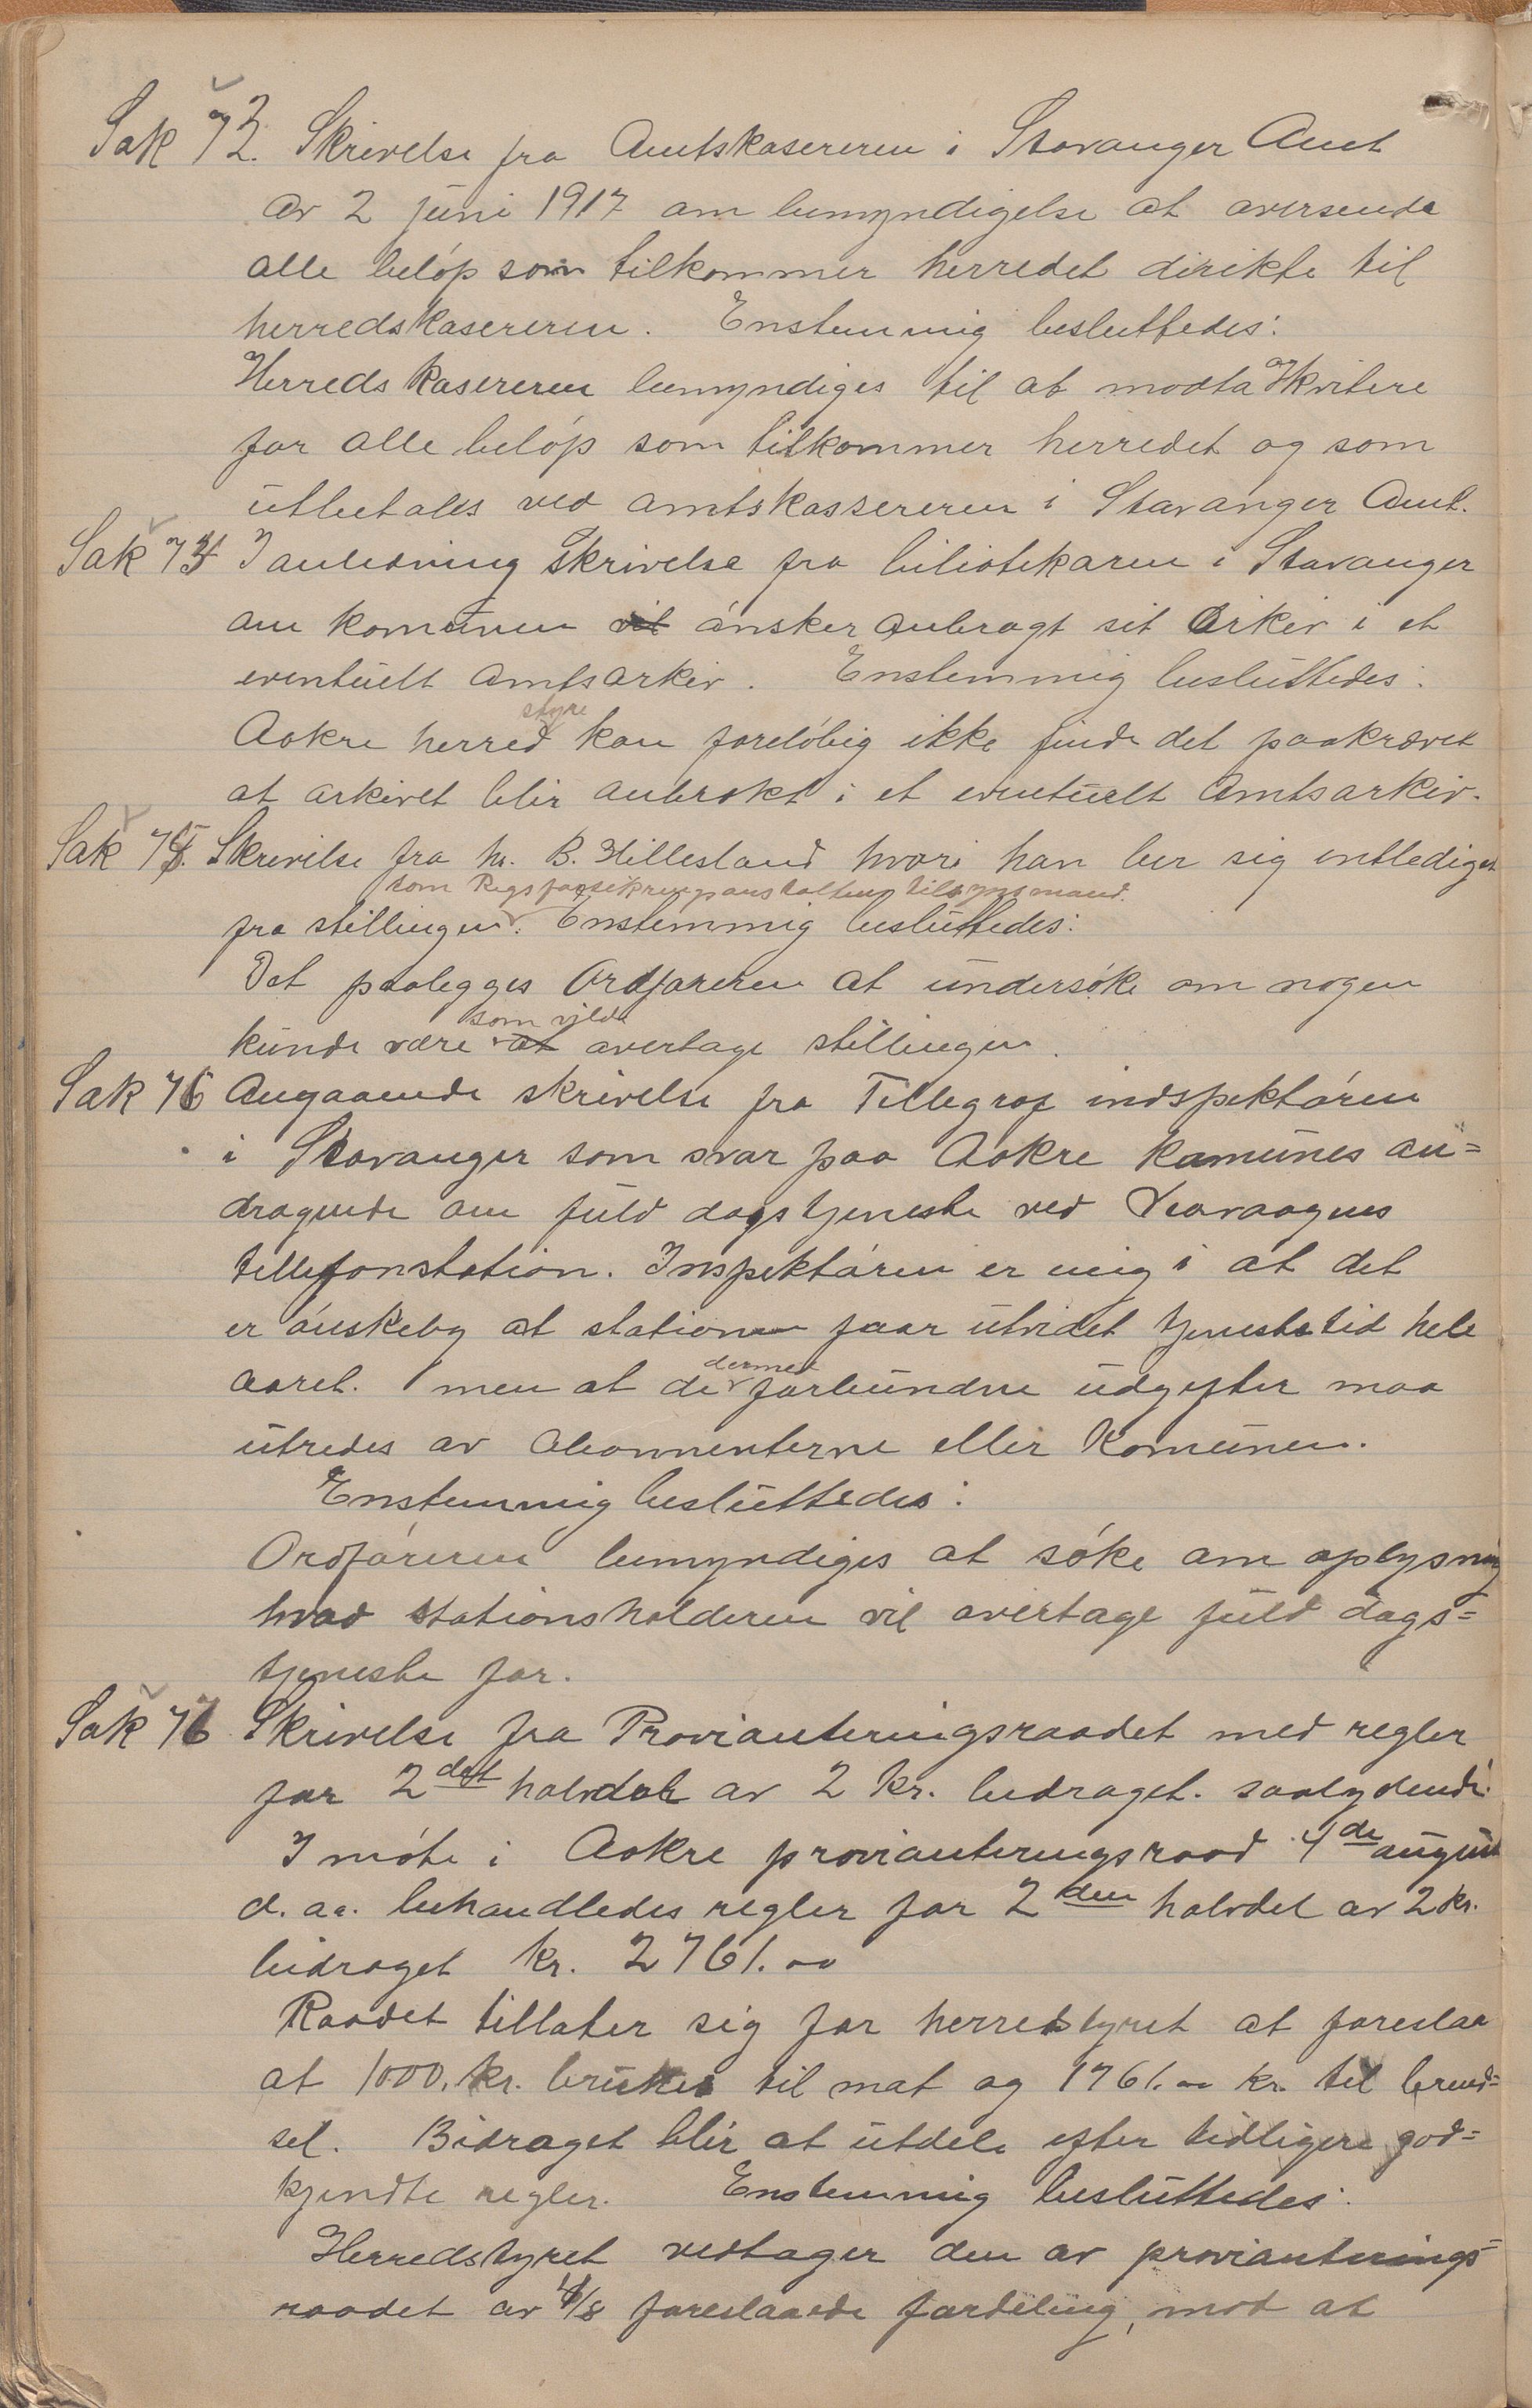 Sak 73. Skrivelse fra Amtskasereren i Stavanger Amt
av 2 juni 1917 om bemyndigelse at aversende
alle beløp som tilkommer herredet direkte til
herredskasereren. Enstemmig besluttedes:
Herredskasereren bemyndiges til at modta og kvitere
for alle beløp som tilkommer herredet og som
utbetales ved amtskassereren i Stavanger Amt.
Sak 74 I anledning skrivelse fra biliotekaren i Stavanger
om komunen vil ønsker anbragt sit Arkiv i et
eventuelt Amtsarkiv. Enstemmig besluttedes:
styre
Aakre herred kan foreløbig ikke finde det paakrævet
at arkivet blir anbrakt i et eventuelt Amtsarkiv.
Sak 75. Skrivelse fra hr. B. Hillesland hvori han ber sig entlediget
som Rigsforsikringsanstaltens tilsynsmand.
fra stillingen. Enstemmig besluttedes:
Det paalegges Ordføreren at undersøke om nogen
som vilde
kunde være at overtage stillingen.
Sak 76 Angaaende skrivelse fra Tillegraf indspektøren
i Stavanger som svar paa Aakre komunes an=
dragende om fuld dagstjeneste ved Veavaagnes
tellefonstation. Inspektøren er enig i at det
er ønskelig at stationen faar utvidet tjenestetid hele
dermed
aaret. men at de forbundne udgifter maa
utredes av Abonnenterne eller Komunen.
Enstemmig besluttedes:
Ordføreren bemyndiges at søke om oplysning
hvad stationsholderen vil overtage fuld dags=
tjeneste for.
Sak 77 Skrivelse fra Provianteringsraadet med regler
for 2det halvdel av 2 kr. bidraget. saalydende:
I møte i Aakre provianteringsraad 4de august
d. aa. behandledes regler for 2den halvdel av 2 kr.
bidraget kr. 2761.00
Raadet tillater sig for herredstyret at foreslaa
at 1000. kr. brukes til mat og 1761.00 kr. til brend=
sel. Bidraget blir at utdele efter tidligere god=
kjendte regler. Enstemmig besluttedes:
Herredstyret vedtager den av provianterings=
raadet av 4/8 foreslaaede fordeling, mot at